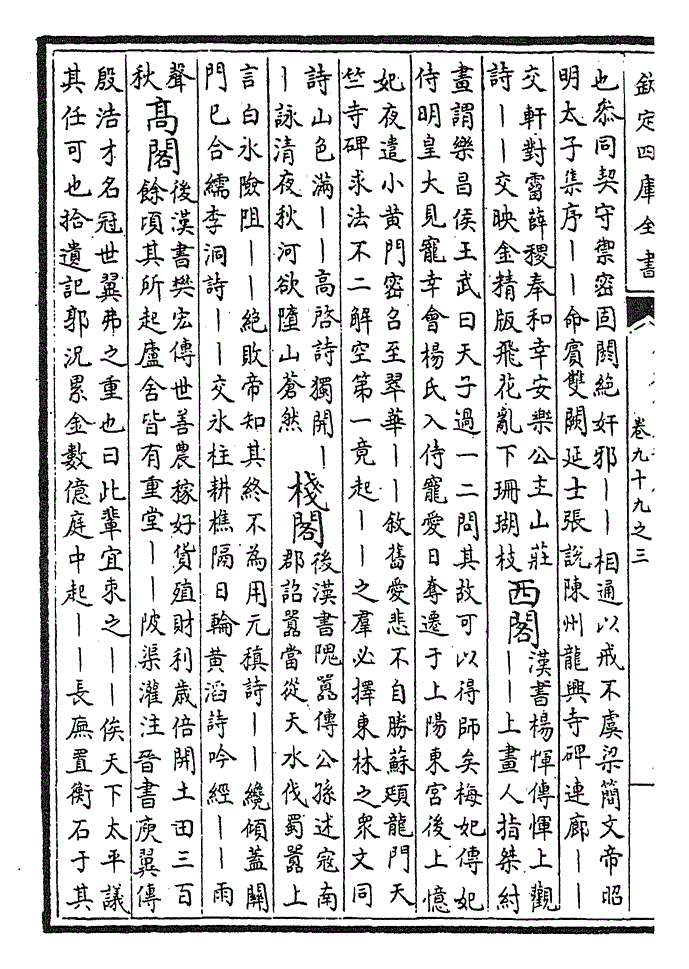 欽定四庫全書
卷九十九之三
也叅同契守禦密固閼絶奸邪——相通以戒不虞梁簡文帝昭
明太子集序——命賓雙闕延士張說陳州龍興寺碑連廊——
交軒對霤薛稷奉和幸安樂公主山莊
詩——交映金精版飛花亂下珊瑚枝
西閣
漢書楊惲傳惲上觀
——上畫人指桀紂
畫謂樂昌侯王武曰天子過一二問其故可以得師矣梅妃傳妃
侍明皇大見寵幸會楊氏入侍寵愛日奪遷于上陽東宮後上憶
妃夜遣小黃門密召至翠華——敘舊愛悲不自勝蘇頲龍門天
竺寺碑求法不二解空第一竟起——之羣必擇東林之衆文同
詩山色滿——高啓詩獨開—
—詠清夜秋河欲墮山蒼然
棧閣
後漢書隗囂傳公孫述寇南
郡詔囂當從天水伐蜀囂上
言白氷險阻——絶敗帝知其終不為用元稹詩——纔傾蓋關
門已合繻李洞詩——交氷柱耕樵隔日輪黃滔詩吟經——雨
聲
秋
高閣
後漢書樊宏傳世善農稼好貨殖財利歲倍開土田三百
餘頃其所起廬舍皆有重堂——陂渠灌注晉書庾翼傳
殷浩才名冠世翼弗之重也曰此輩宜束之——俟天下太平議
其任可也拾遺記郭況累金數億庭中起——長廡置衡石于其